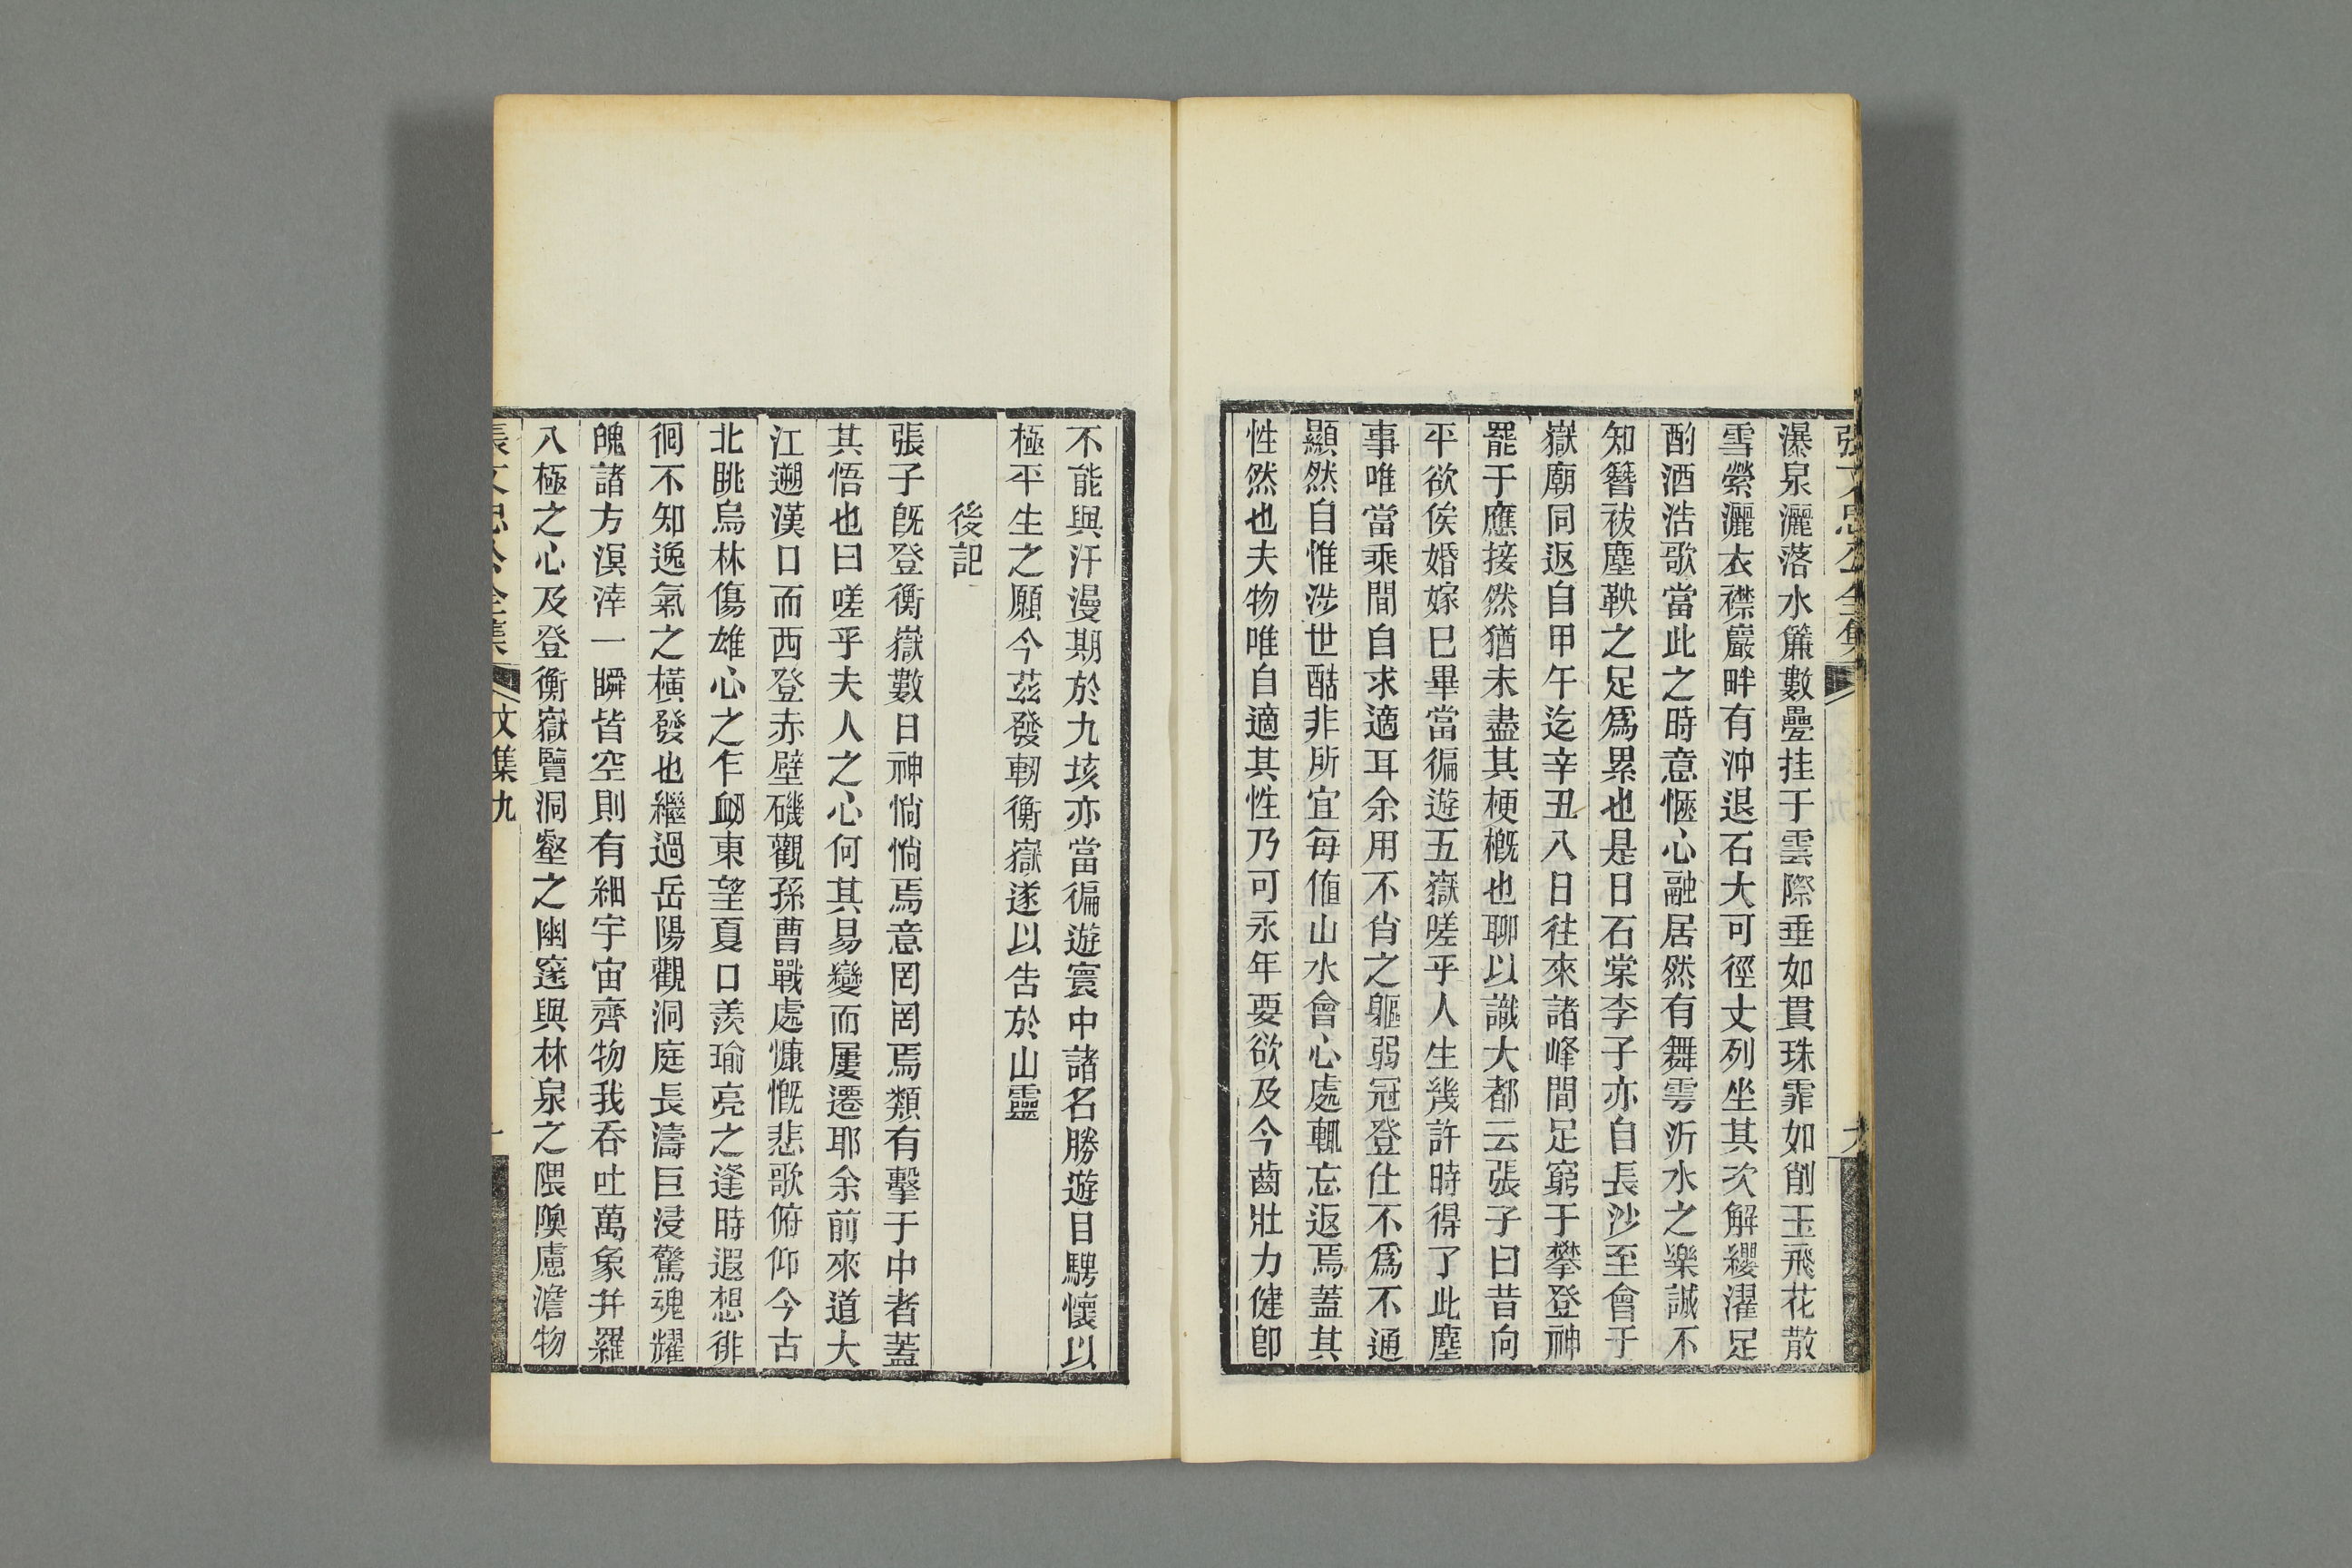 張文忠公全集
瀑泉灑落水簾數疊挂于雲際垂如貫珠霏如削玉飛花散
雪縈灑衣襟巖畔有沖退石大可徑丈列坐其次解纓濯足
酌酒浩歌當此之時意愜心融居然有舞雩沂水之樂誠不
知簪袚塵鞅之足爲累也是日石棠李子亦自長沙至會于
嶽廟同返自甲午迄辛丑八日往來諸峰間足窮于攀登神
罷于應接然猶未盡其梗槪也聊以識大都云張子曰昔向
平欲俟婚嫁巳畢當徧遊五嶽嗟乎人生幾許時得了此塵
事唯當乘間自求適耳余用不肖之軀弱冠登仕不爲不通
顯然自惟涉世酷非所宜每値山水會心處輒忘返焉蓋其
性然也夫物唯自適其性乃可永年要欲及今齒壯力健卽
不能與汗漫期於九垓亦當徧遊寰中諸名勝遊目騁懷以
極平生之願今茲發軔衡嶽遂以告於山靈
後記
張子旣登衡嶽數日神惝惝焉意罔罔焉類有擊于中者蓋
其悟也曰嗟乎夫人之心何其易變而屢遷耶余前來道大
江遡漢口而西登赤壁磯觀孫曹戰處慷慨悲歌俯仰今古
北眺烏林傷雄心之乍衂東望夏口羨瑜亮之逢時遐想徘
徊不知逸氣之橫發也繼過岳陽觀洞庭長濤巨浸驚魂耀
魄諸方溟涬一瞬皆空則有細宇宙齊物我吞吐萬象并羅
八極之心及登衡嶽覽洞壑之幽邃與林泉之隈隩慮澹物
張文忠公全集
文集九